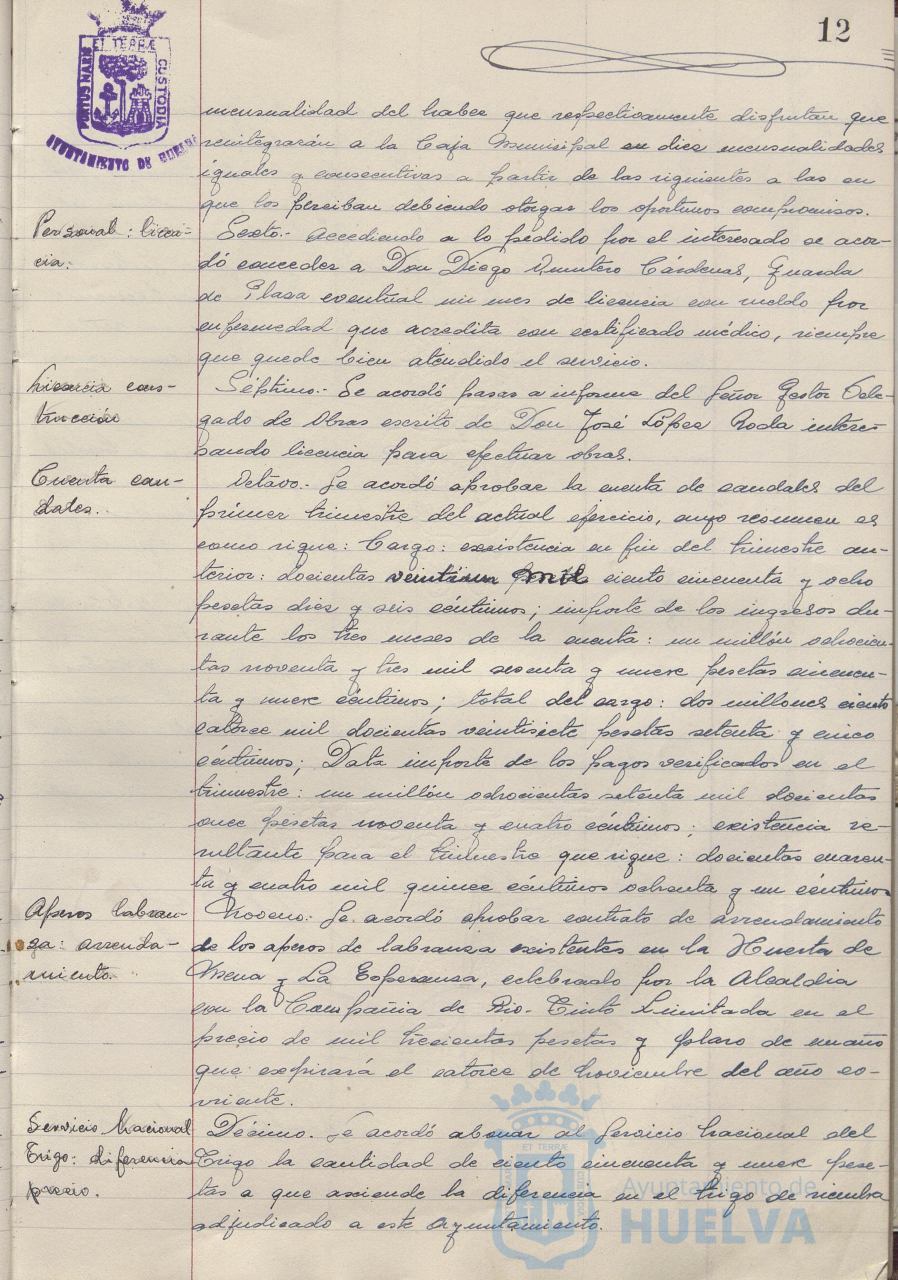 12
ET TERRÆ
PORTUS MARIS
CUSTODIA
AYUNTAMIENTO DE HUELVA
mensualidad del haber que respectivamente disfrutan que
reintegrarán a la Caja Municipal en diez mensualidades
iguales y consecutivas a partir de las siguientes a las en
que los perciban debiendo otorgar los oportunos compromisos.
Personal: licen-
cia:
Sexto.- Accediendo a lo pedido por el interesado se acor-
dó conceder a Don Diego Quintero Cárdenas, Guarda
de Plaza eventual un mes de licencia con sueldo por
enfermedad que acredita con certificado médico, siempre
que quede bien atendido el servicio.
Licencia cons-
trucción
Séptimo.- Se acordó pasar a informe del Señor Gestor Dele-
gado de Obras escrito de Don José López Roda intere-
sando licencia para efectuar obras.
Cuenta cau-
dales..
Octavo.- Se acordó aprobar la cuenta de caudales del
primer trimestre del actual ejercicio, cuyo resumen es
como sigue: Cargo: existencia en fin del trimestre an-
terior: docientas veintiun mil ciento cincuenta y ocho
pesetas diez y seis céntimos; importe de los ingresos du-
rante los tres meses de la cuenta: un millón ochocien-
tas noventa y tres mil sesenta y nueve pesetas cincuen-
ta y nueve céntimos; total del cargo: dos millones ciento
catorce mil docientas veintisiete pesetas setenta y cinco
céntimos; Data importe de los pagos verificados en el
trimestre: un millón ochocientas setenta mil docientas
once pesetas noventa y cuatro céntimos; existencia re-
sultante para el trimestre que sigue: docientas cuaren-
ta y cuatro mil quince céntimos ochenta y un céntimos
Aperos labran-
za: arrenda-
miento.
Noveno: Se acordó aprobar contrato de arrendamiento
de los aperos de labranza existentes en la Huerta de
Mena y La Esperanza, celebrado por la Alcaldia
con la Compañia de Rio-Tinto Limitada en el
precio de mil trecientas pesetas y plazo de un año
que expirará el catorce de noviembre del año co-
rriente.
Servicio Nacional
Trigo: diferencia
precio.
Décimo. Se acordó abonar al Servicio Nacional del
Trigo la cantidad de ciento cincuenta y nueve pese-
tas a que asciende la diferencia en el trigo de siembra
adjudicado a este Ayuntamiento.
ET TERRÆ
Ayuntamiento de
HUELVA